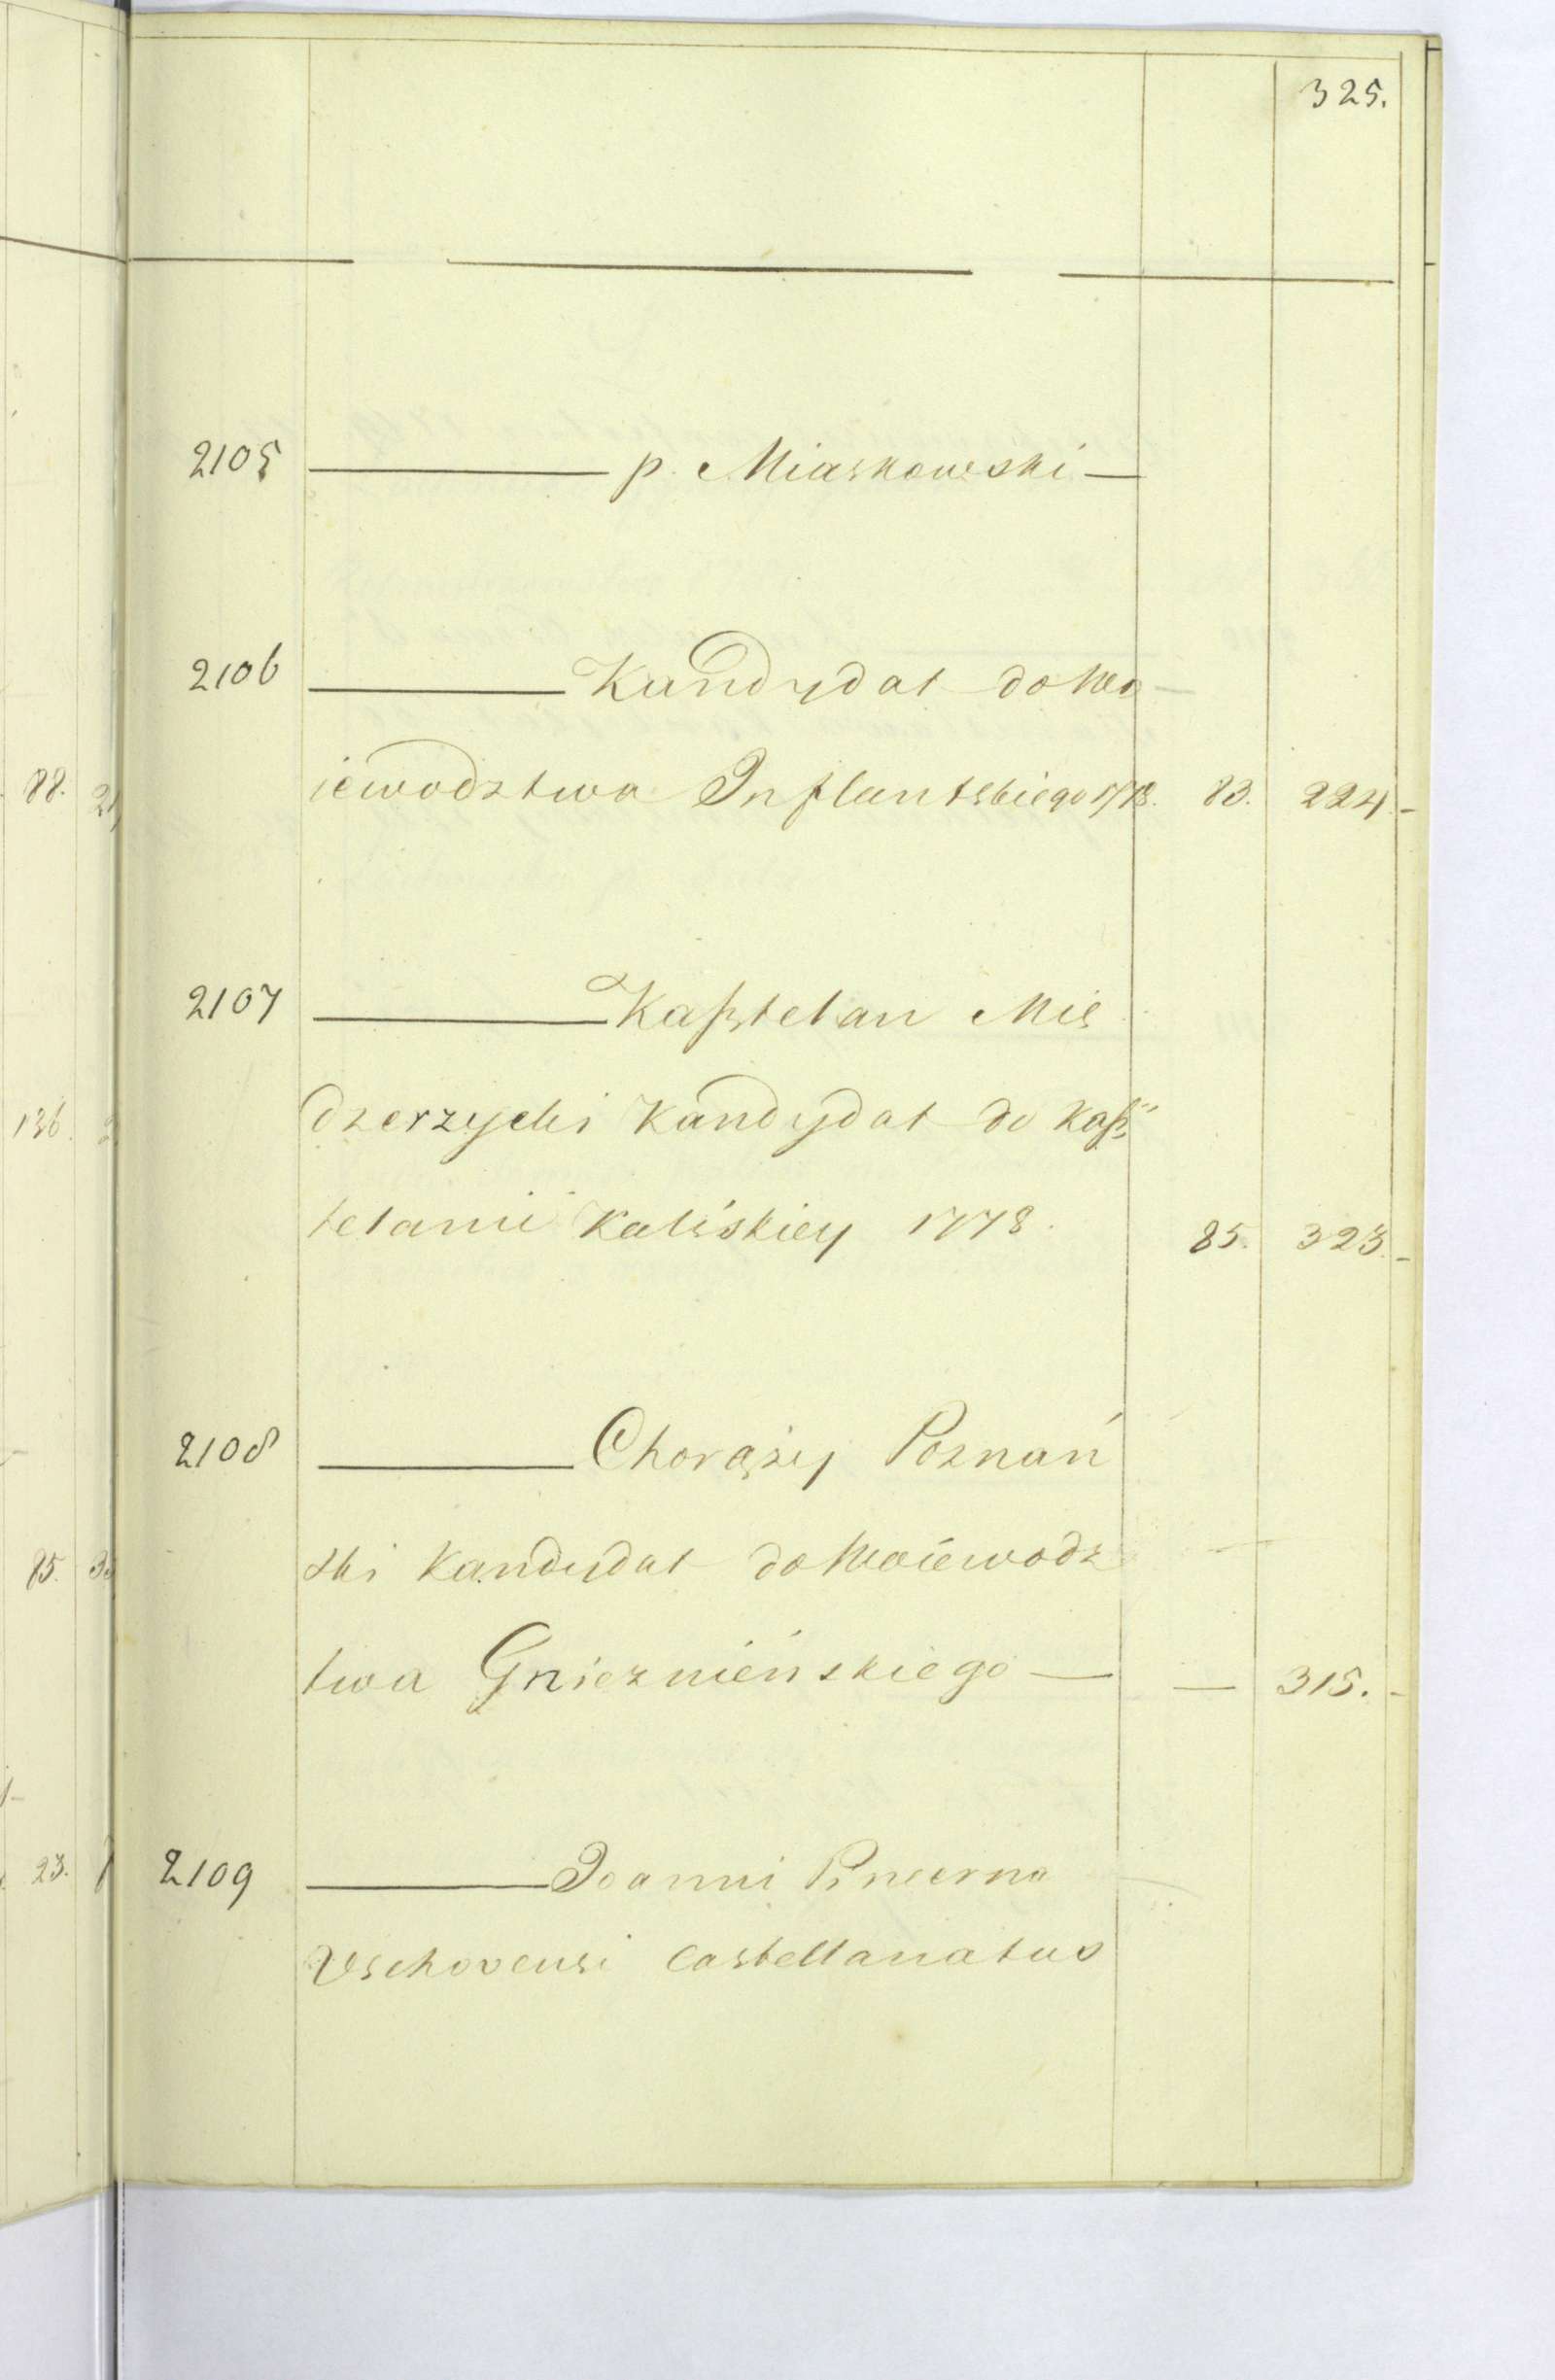 325.
2105 ——— p. Miaskowski —
2106 ——— Kandydat do Wo
iewodztwa Inflantskiego 1778. 83. 224.-
2107 ——— Kasztelan Mię
dzerzycki Kandydat do Kasz
telanii Kaliskiey 1778. 85. 323.-
2108 ——— Chorąży Poznań
ski Kandydat do Woiewodz
twa Gnieznieńskiego — — 315.-
2109 ——— Joanni Pincerna
Vschovensi Castellanatus
88.
136.
85.
23.